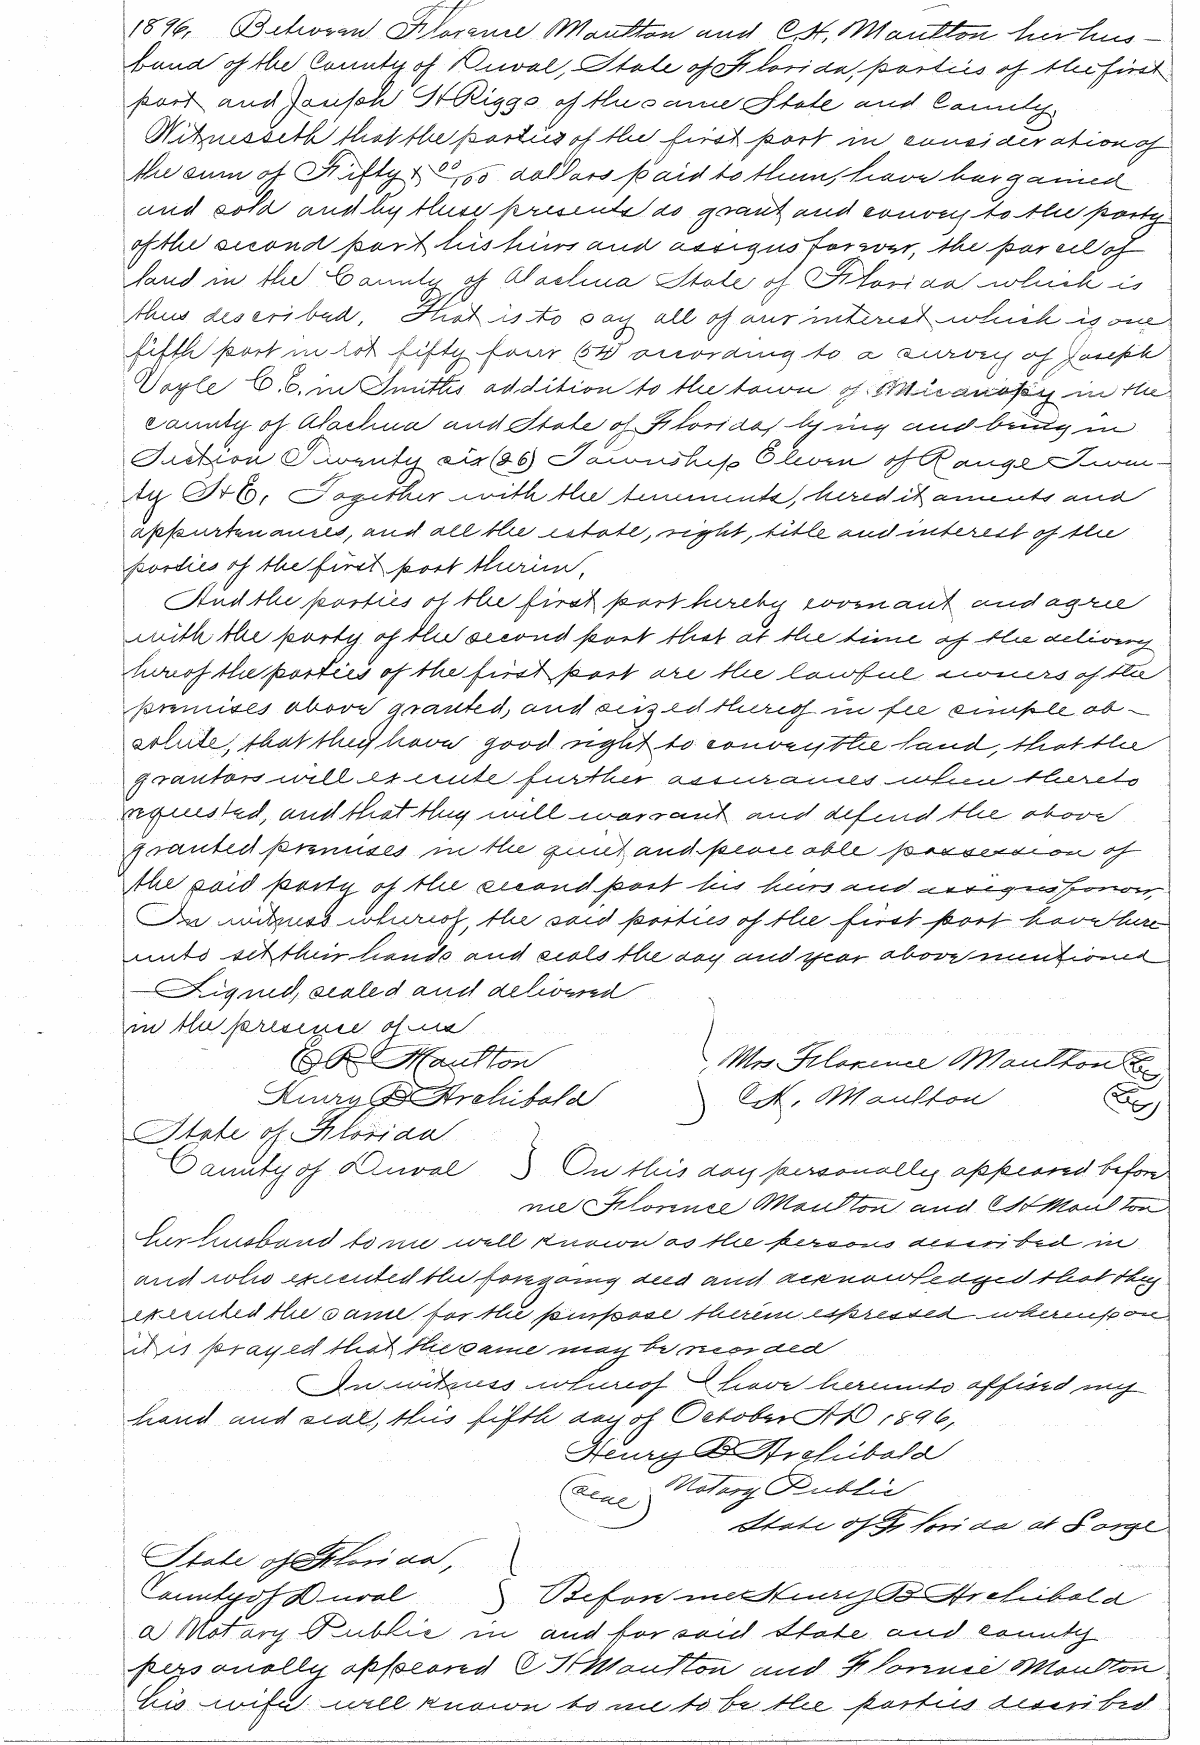 1896, Between Florence Moulton and C.H. Moulton her hus-
band of the County of Duval, State of Florida, parties of the first
part and Joseph H Riggs of the same State and County,
Witnesseth that the parties of the first part in consideration of
the sum of Fifty & 00/100 dollars paid to them, have bargained
and sold and by these presents do grant and convey to the party
of the second part his heirs and assigns forever, the parcel of
land in the County of Alachua State of Florida which is
thus described, That is to say all of our interest which is one
fifth part in lot fifty four (54) according to a survey of Joseph
Voyle C.E. in Smiths addition to the town of Micanopy in the
county of Alachua and State of Florida, lying and being in
Section Twenty six (26) Township Eleven of Range Twen-
ty S&E, Together with the tenements, hereditaments and
appurtenances, and all the estate, right, title and interest of the
parties of the first part therein,
And the parties of the first part hereby covenant and agree
with the party of the second part that at the time of the delivery
hereof the parties of the first part are the lawful owners of the
premises above granted, and seized thereof in fee simple ab-
solute, that they have good right to convey the land, that the
grantors will execute further assurances when thereto
requested, and that they will warrant and defend the above
granted premises in the quiet and peaceable possession of
the said party of the second part his heirs and assigns forever,
In witness whereof, the said parties of the first part have here
unto set their hands and seals the day and year above mentioned
Signed, sealed and delivered
in the presence of us
E R Moulton Mrs Florence Moulton
Henry B Archibald C.H. Moulton
State of Florida
County of Duval } On this day personally appeared before
me Florence Moulton and C H Moulton
her husband to me well known as the persons described in
and who executed the foregoing deed and acknowledged that they
executed the same for the purpose therein expressed whereupon
it is prayed that the same may be recorded
In witness whereof I have hereunto affixed my
hand and seal, this fifth day of October A D 1896,
Henry B Archibald
(seal) Notary Public
State of Florida at Large
State of Florida,
County of Duval } Before me Henry B Archibald
a Notary Public in and for said State and county
personally appeared C H Moulton and Florence Moulton
his wife well known to me to be the parties described